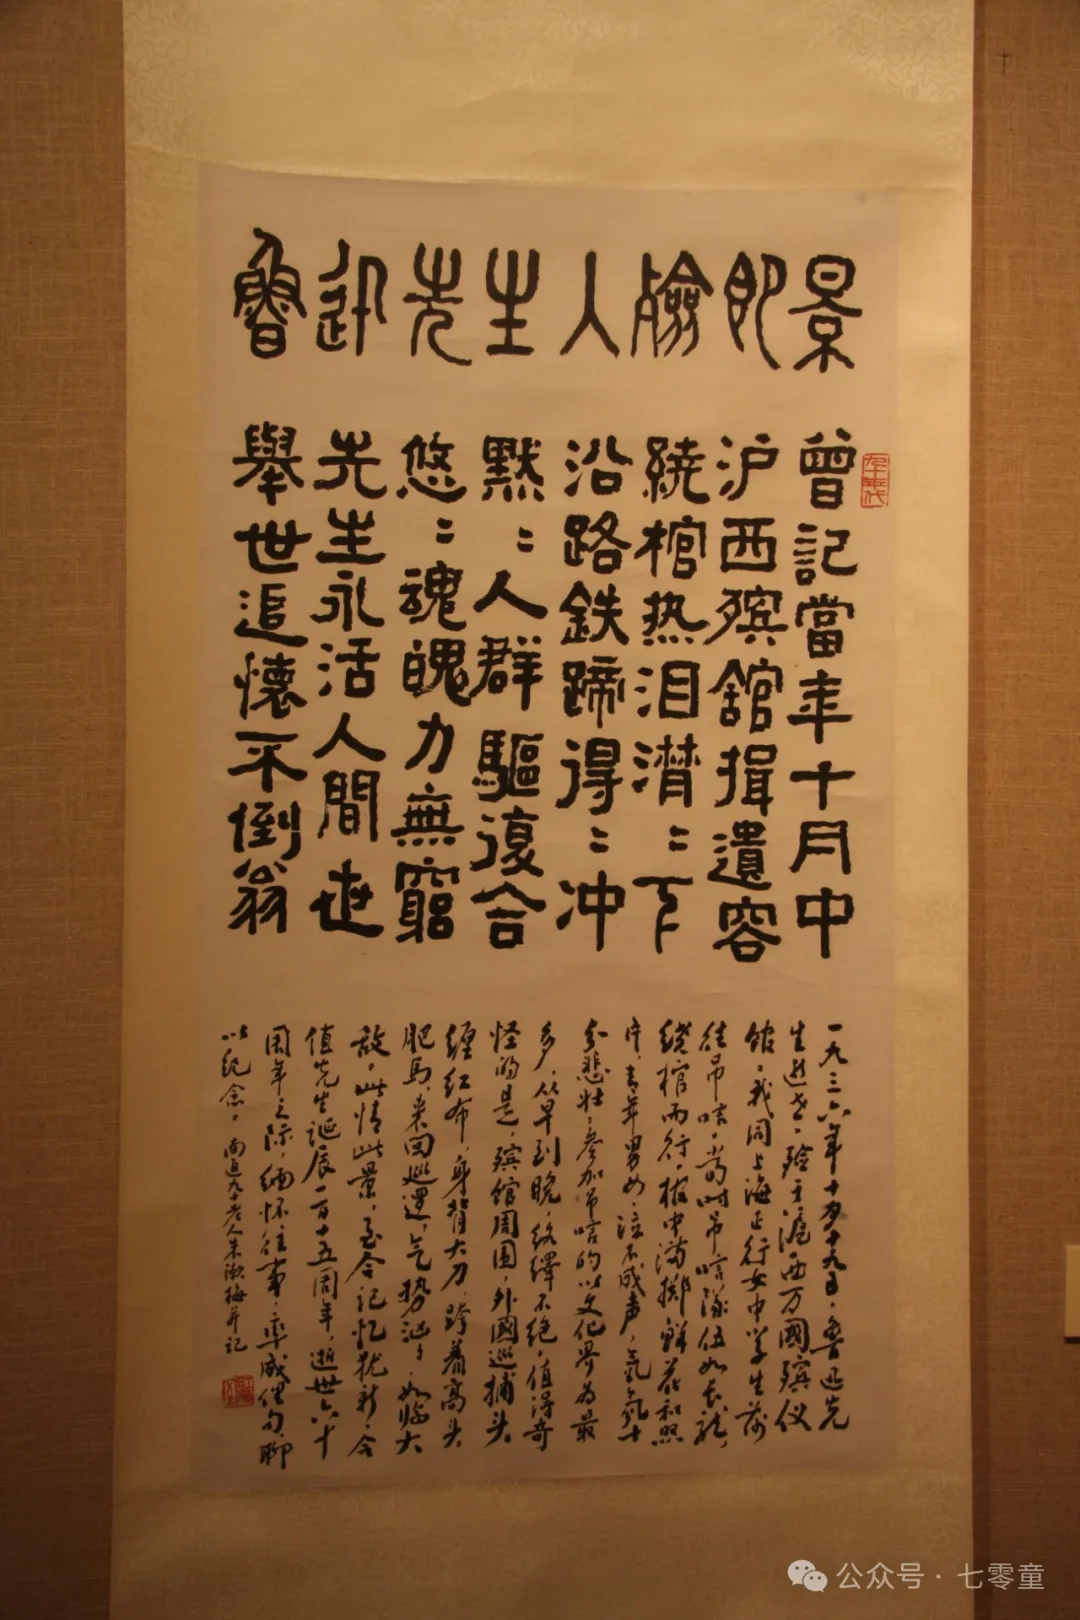 魯迅先生入殮即景
曾記當年十月中
沪西殡舘揖遺容
繞棺热泪潸〻下
沿路鉄蹄得〻冲
黙〻人群驅復合
悠〻魂魄力無窮
先生永活人間世
舉世追懷不倒翁
一九三六年十月十九日，鲁迅先
生逝世，殓于滬西万國殡仪
馆，我同上海正行女中学生前
往吊唁，当时吊唁队伍如长龙，
绕棺而行，棺中满掷鲜花和照
片，青年男女，泣不成声，气氛十
分悲壮，参加吊唁的以文化界为最
多，从早到晚，络绎不绝，值得奇
怪的是，殡馆周围，外國巡捕头
缠红布，身背大刀，跨着高头
肥马，来回巡逻，气势汹〻，如临大
敌，此情此景，至今记忆犹新，今
值先生诞辰一百十五周年，逝世六十
周年之际，缅怀往事，率成俚句，聊
以纪念，南通九十老人朱漱梅并记
公众号·七零童